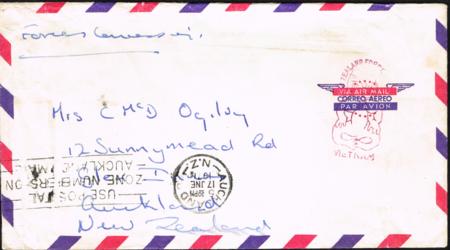 Forces Concession
ZEALAND FORCE
VIA AIR MAIL
CORREO AEREO
PAR AVION
VIETNAM
Mrs C McD Ogilvy
12 Sunnymead Rd
Auckland
New Zealand
AUCKLAND N.Z.
17 JNE
USE POSTAL
ZONE NUMBERS ON